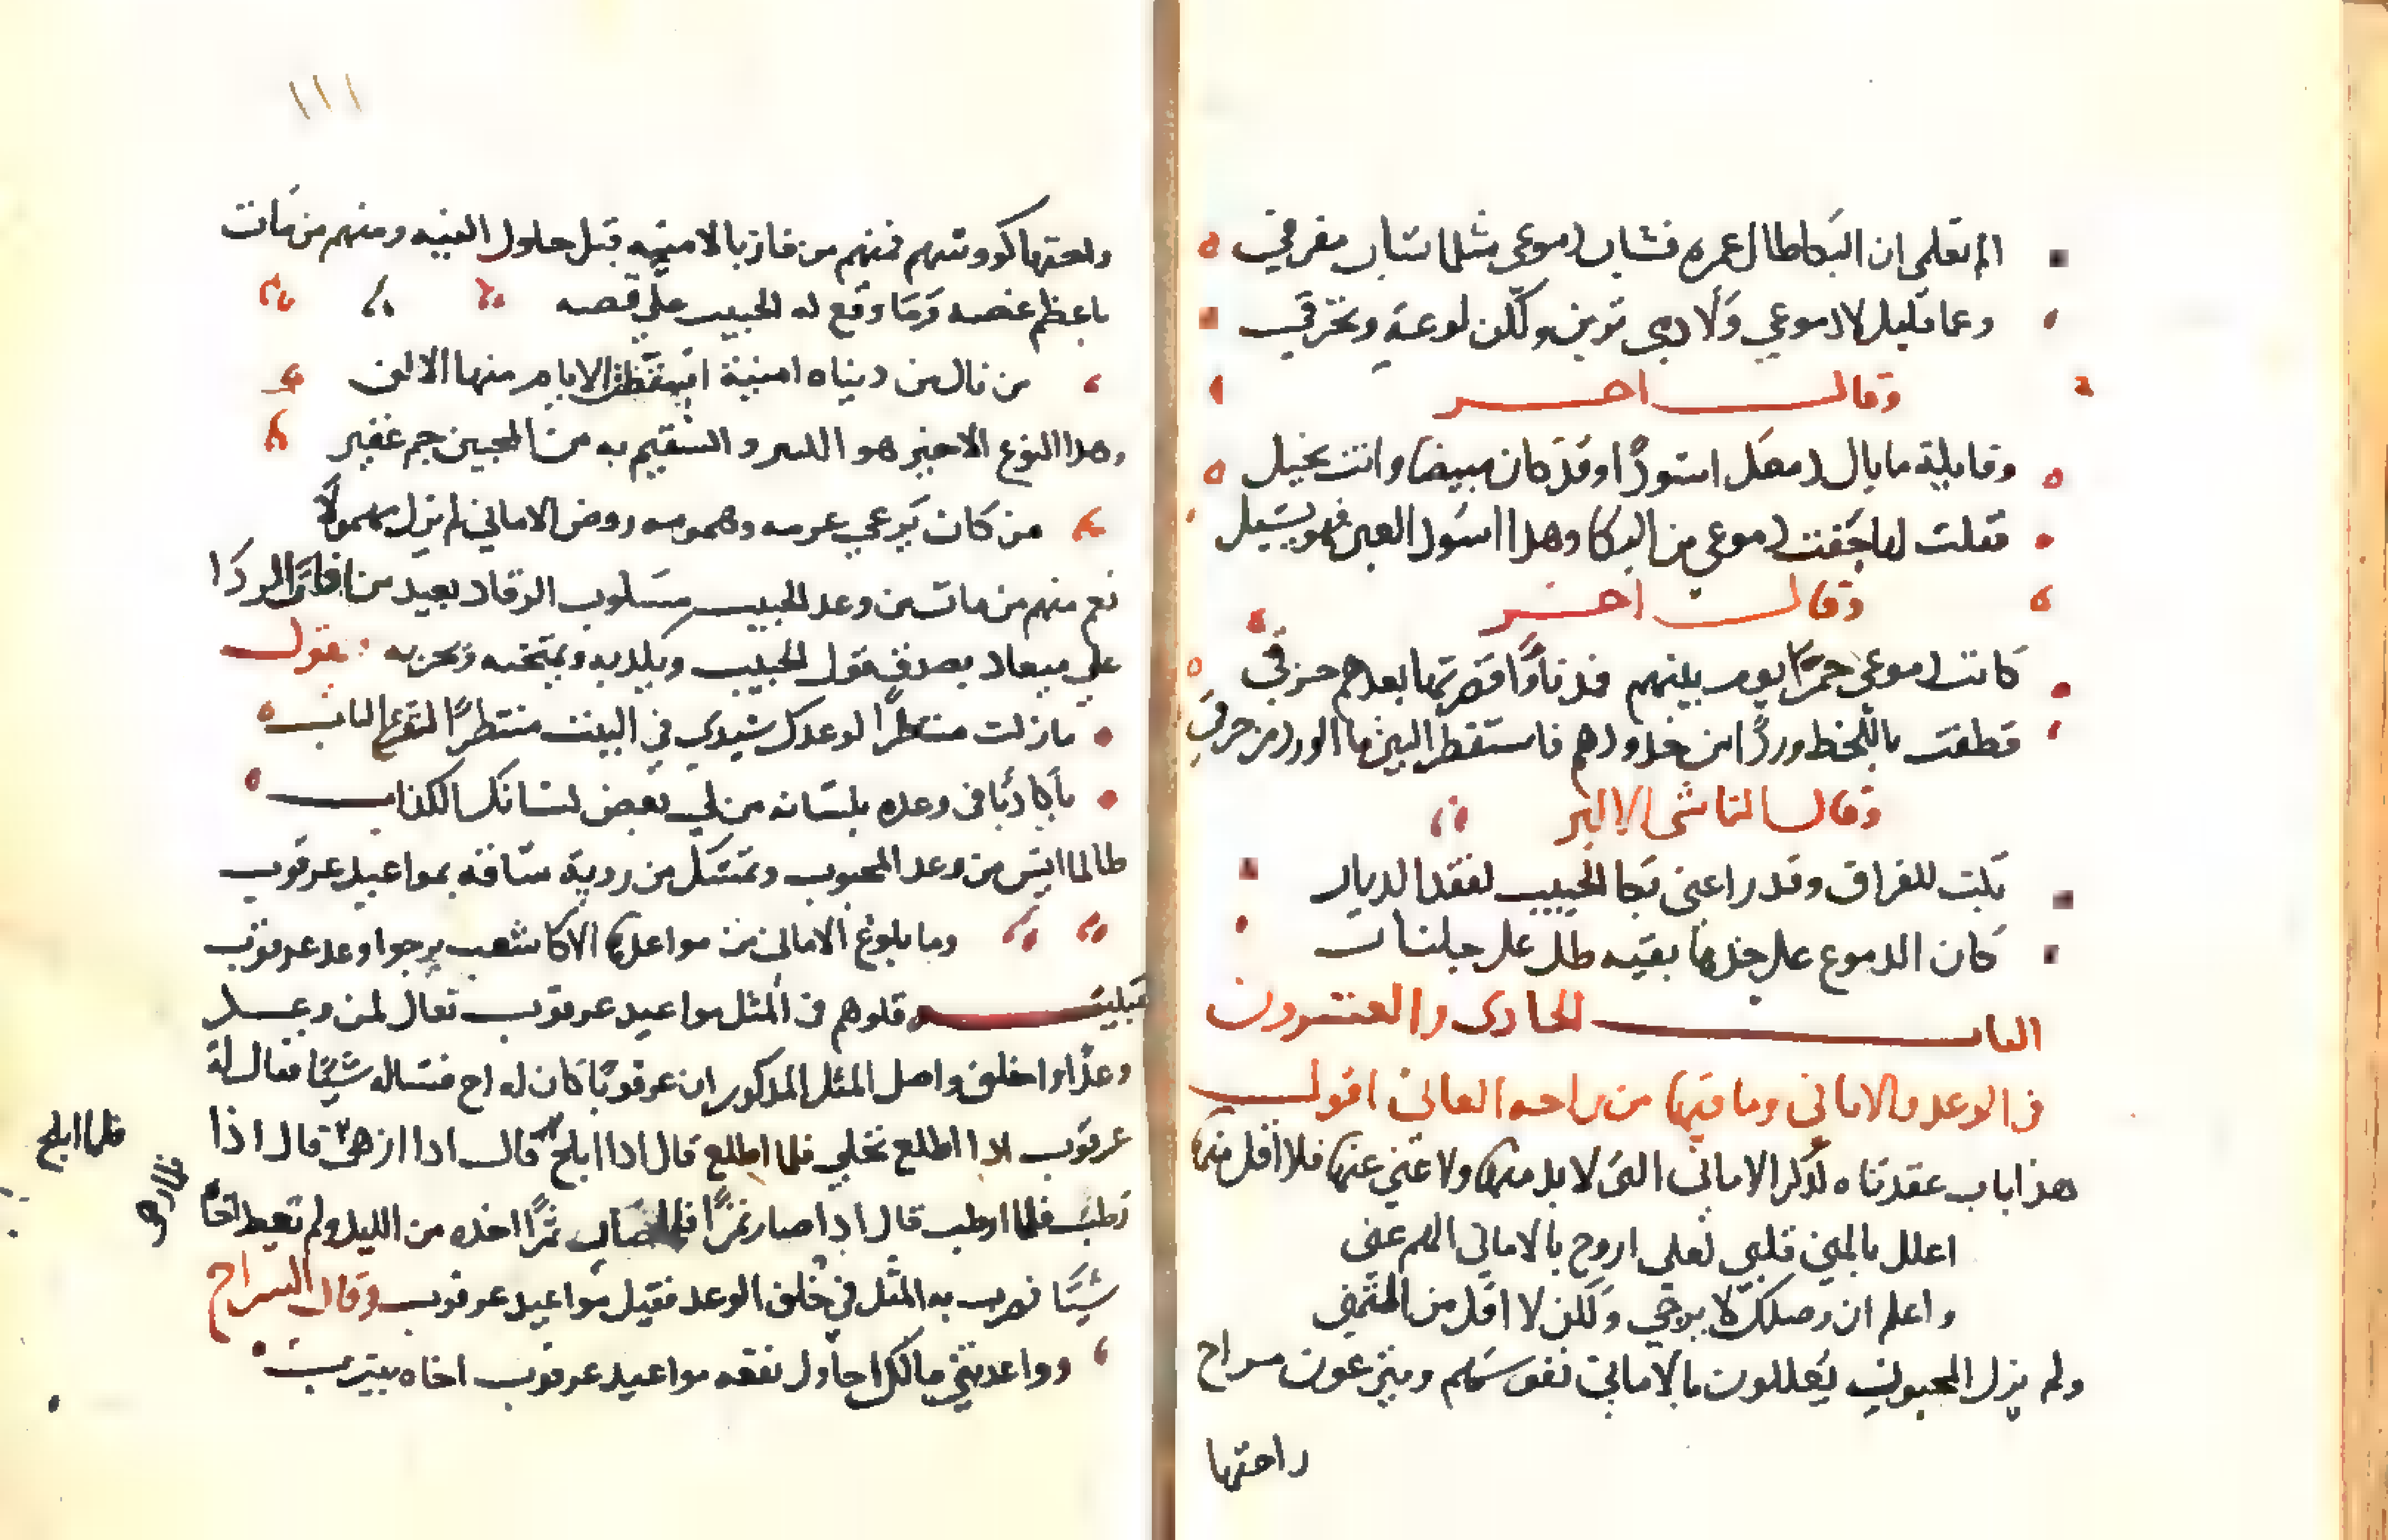 الم تعلمي ان البكا طال عمره فشابت دموعي مثلما شاب مفرقي
وعما قليل لا دموعي ولا دمي ترين ولكن لوعة وتحرقي
وقال اخر
وقايلة ما بال دمعك اسودا وقد كان مبيضا وانت نحيل
فقلت لها جفت دموعي من البكا وهذا اسود العين فهو يسيل
وقال اخر
كانت دموعي حمرا يوم بينهم فذ ناوا قصرتها بعدهم حرقي
قطفت باللحظ وردا من خدودهم فاستقطر البين ما الورد من حرقي
وقال الناشي الاكبر
بكت للفراق وقد راعني بكا الحبيب لفقد الديار
كان الدموع علي خدها بقيه طل علي جلنار
الباب الحادي والعشرون
في الوعد والاماني وما فيها من راحه العاني اقول
هذا باب عقدناه لذكر الاماني التي لا بد منها ولا غني عنها فلا اقل منها
اعلل بالمني قلبي لعلي اروح بالاماني الهم عني
واعلم ان وصلك لا يرجي ولكن لا اقل من التمني
ولم يزل المحبون يعللون بالاماني نفوسهم ويترعون من راح
راحتها
١١١
وراحتها كووسهم فمنهم من فاز بالامنيه قبل حلول المنيه ومنهم من مات
باعظم غصه وما وقع له الحبيب علي قصه
من نال من دنياه امنية اسقطت الايام منها الالف
وهذا النوع الاخير هو الاكثر و السقيم به من المحبين جم غفير
من كان يرعي عرمه وهمومه روض الاماني لم يزل مهزولا
نعم منهم من مات من وعد الحبيب مسلوب الرقاد بعيد من
علي ميعاد يصدق بقول الحبيب ويكذبه ويمتحنه ويجربه يقول
ما زلت منتظرا لوعدك سيدي في البيت منتظرا الباب
يا كاذبا في وعده بلسانه من لي بعض لسانك الكذاب
طالما ايس من وعد المحبوب وتمثل من روية مشافه بمواعيد عرقوب
وما بلوغ الاماني من مواعدها الا كاشعب يرجوا وعد عرقوب
قولهم في المثل مواعيد عرقوب تقال لمن وعد
وعدا واخلف واصل المثل المذكور ان عرقوبا كان له اخ فساله شيئا فقال له
عرقوب اذا اطلع نخلي فلما اطلع قال اذا ابلح قال اذا ازهي قال اذا
فلما ابلح
فلما ازهي
رطب فلما ارطب قال اذا صار تمرا فلما صار تمرا اخذه من الليل ولم يعط اخاه
شيئا فضرب به المثل في خلف الوعد فقيل مواعيد عرقوب وقال السراج
وواعدتني مالك احاول نفعه مواعيد عرقوب اخاه بيترب